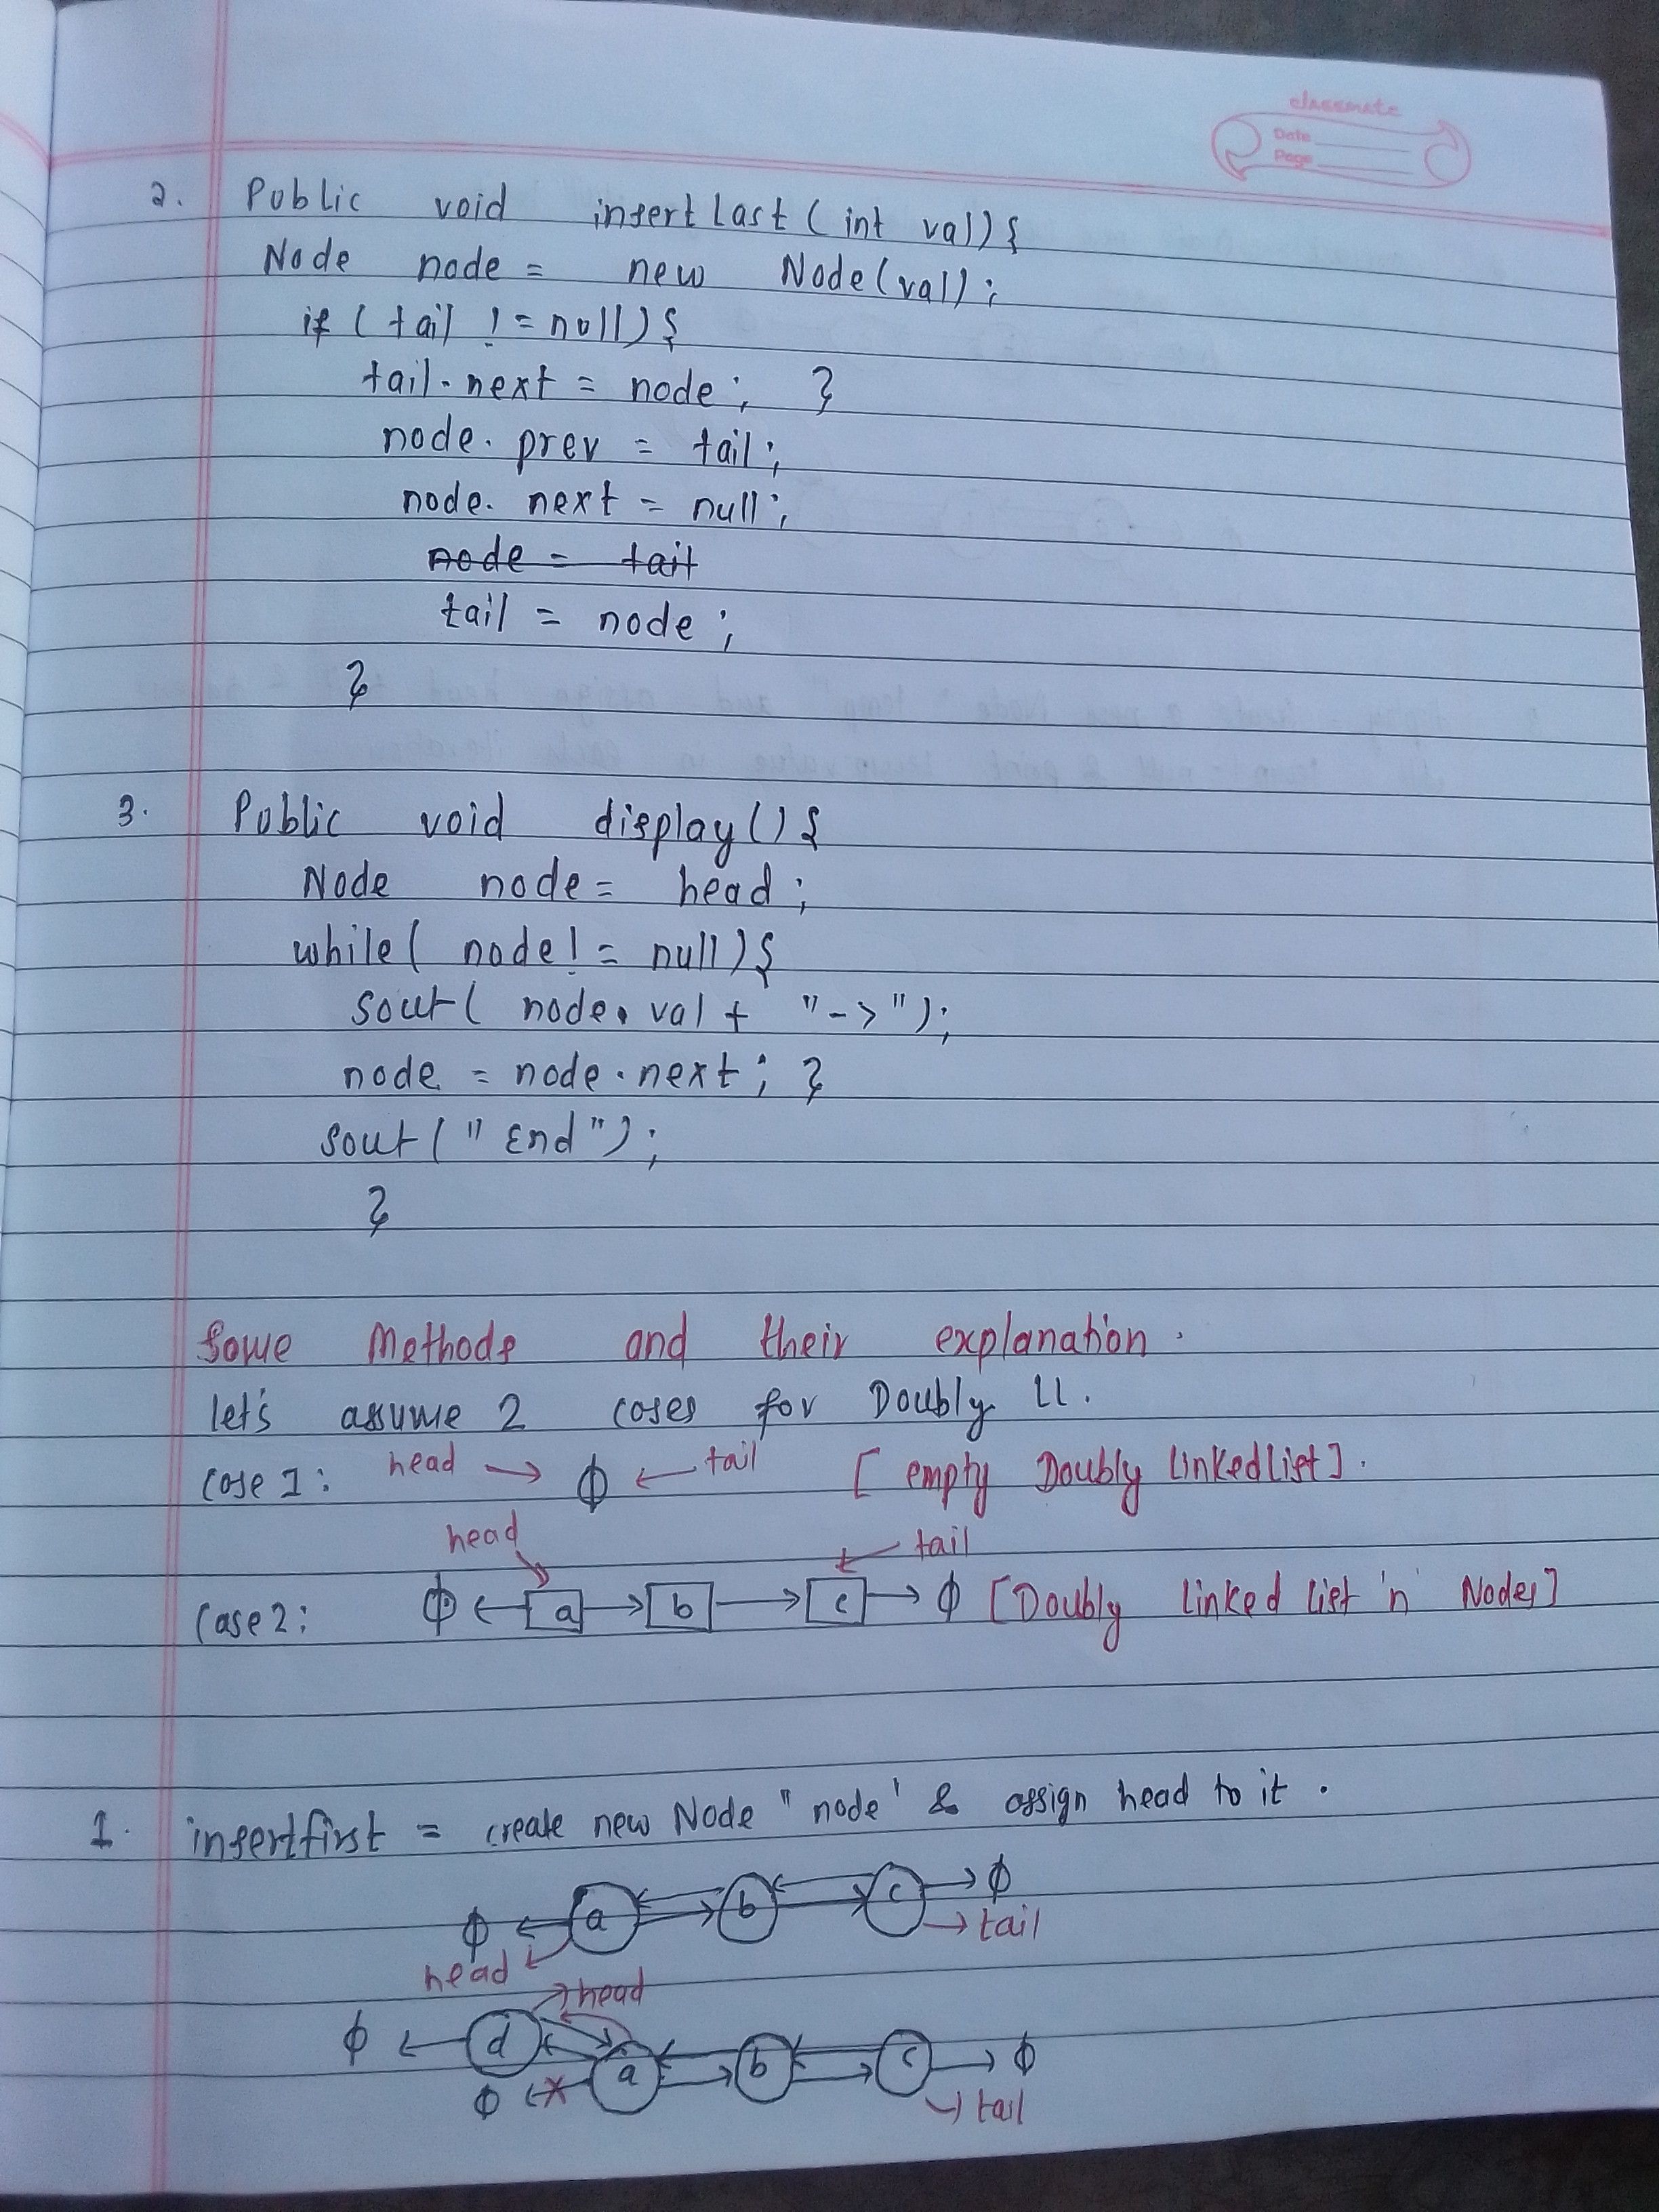 classmate
Date
Page
2. Public void insertLast(int val){
Node node = new Node(val);
if (tail != null){
tail.next = node; }
node.prev = tail;
node.next = null;
node = tail
tail = node;
}
3. Public void display(){
Node node = head;
while( node != null){
sout( node.val + "->");
node = node.next; }
sout("End");
}
Some Methods and their explanation.
let's assume 2 cases for Doubly LL.
Case 1: head → ϕ ← tail [empty Doubly Linkedlist].
head tail
Case 2: ϕ ← a → b → c → ϕ [Doubly linked list 'n' Nodes]
1. insertfirst = create new Node "node' & assign head to it.
ϕ a b c ϕ
head tail
head
ϕ d a b c ϕ
ϕ tail